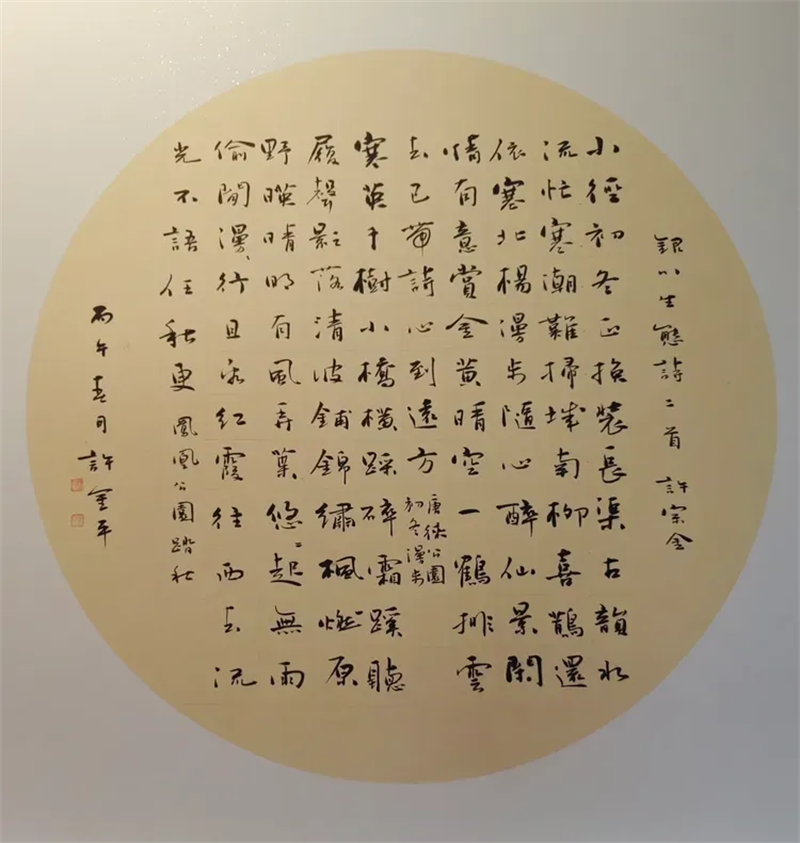 銀川生態詩二首 許宗金
小徑初冬正換裝長渠古韻水
流忙寒潮難掃城南柳喜鵲還
依塞北楊漫步隨心醉仙景閑
情有意賞金黃晴空一鶴排雲
去已帶詩心到遠方
唐徠公園
初冬漫步
寒千樹小橋橫踩碎霜蹊聽
履聲影落清波鋪錦繡楓燃原
野暎晴明有風弄葉悠〻起無雨
偷閒漫行且紅霞往西去流
光不語任秋更 鳳凰公園踏秋
丙午春月 許金平